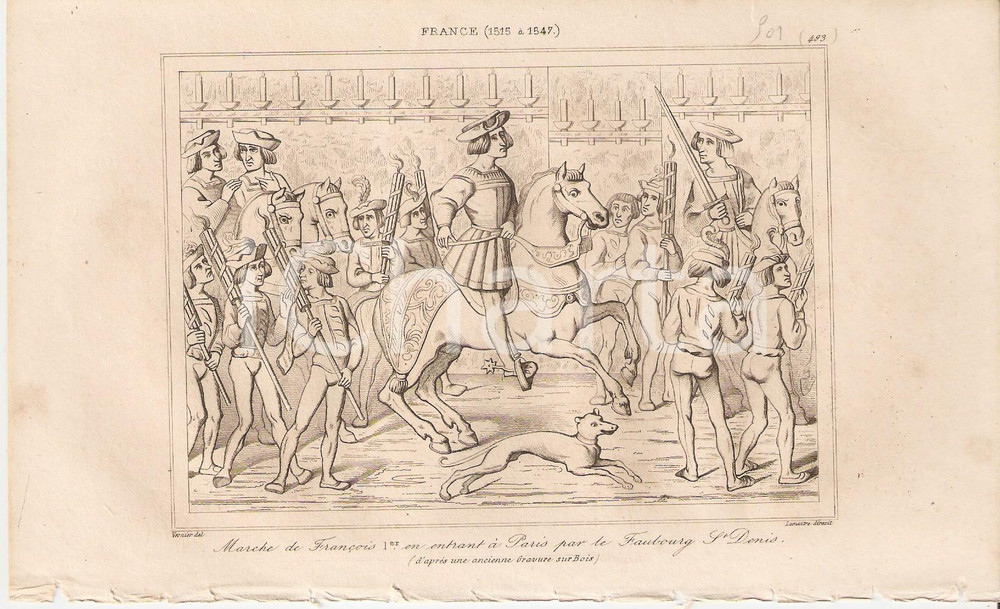 FRANCE (1515 à 1547.)
(483)
Vernier del
Lemaitre direxit
Marche de François 1er en entrant à Paris par le Faubourg St Denis.
(d'après une ancienne Gravure sur Bois)